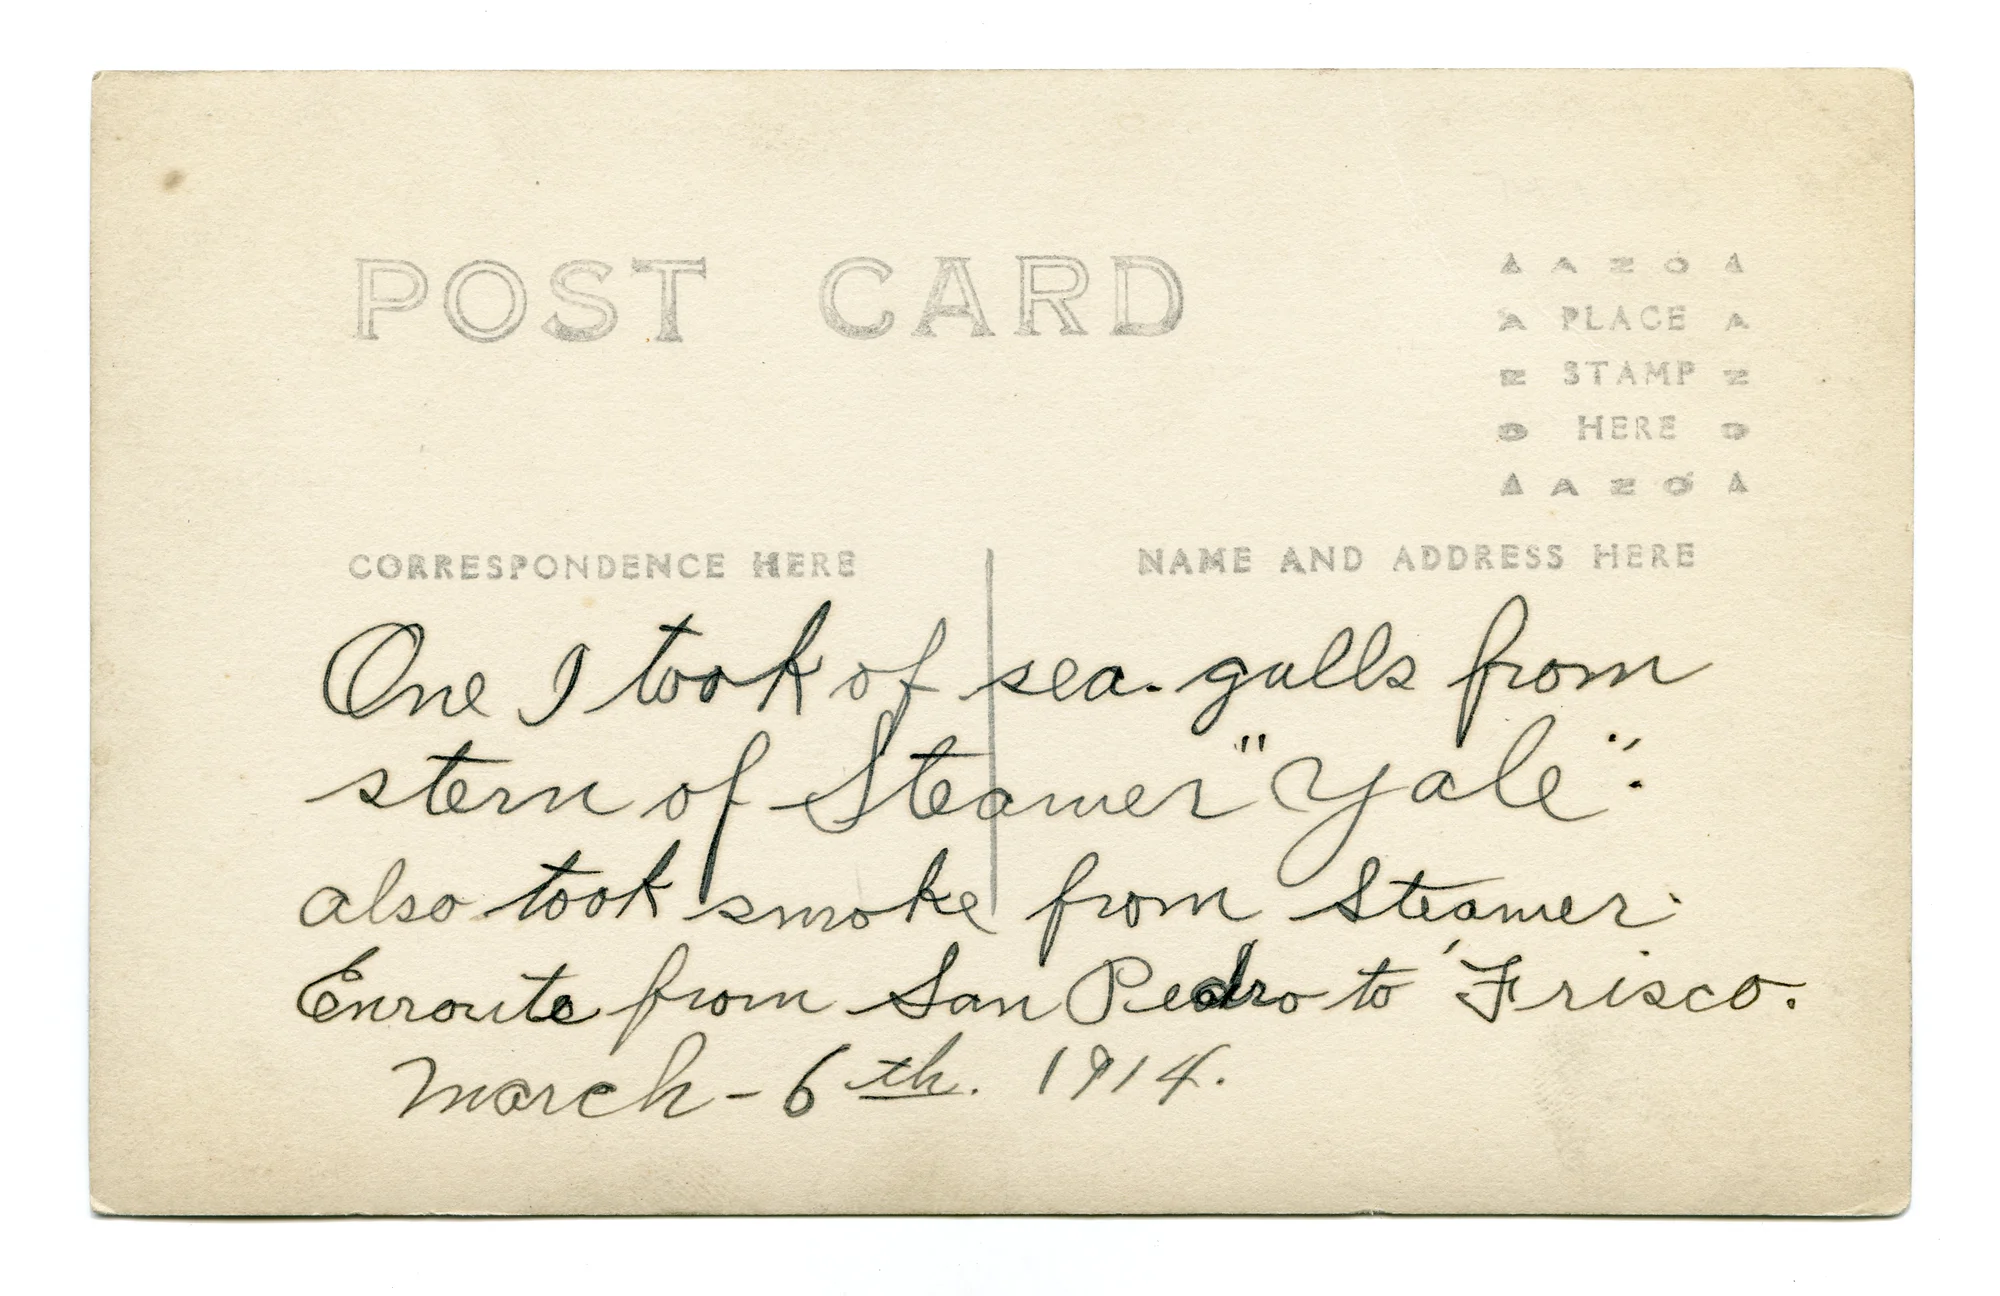 POST CARD
▲ A Z O ▲
A PLACE A
Z STAMP Z
O HERE O
▲ A Z O ▲
CORRESPONDENCE HERE
NAME AND ADDRESS HERE
One I took of sea-gulls from
stern of Steamer "Yale".
also took smoke from Steamer.
Enroute from San Pedro to 'Frisco.
March - 6th. 1914.